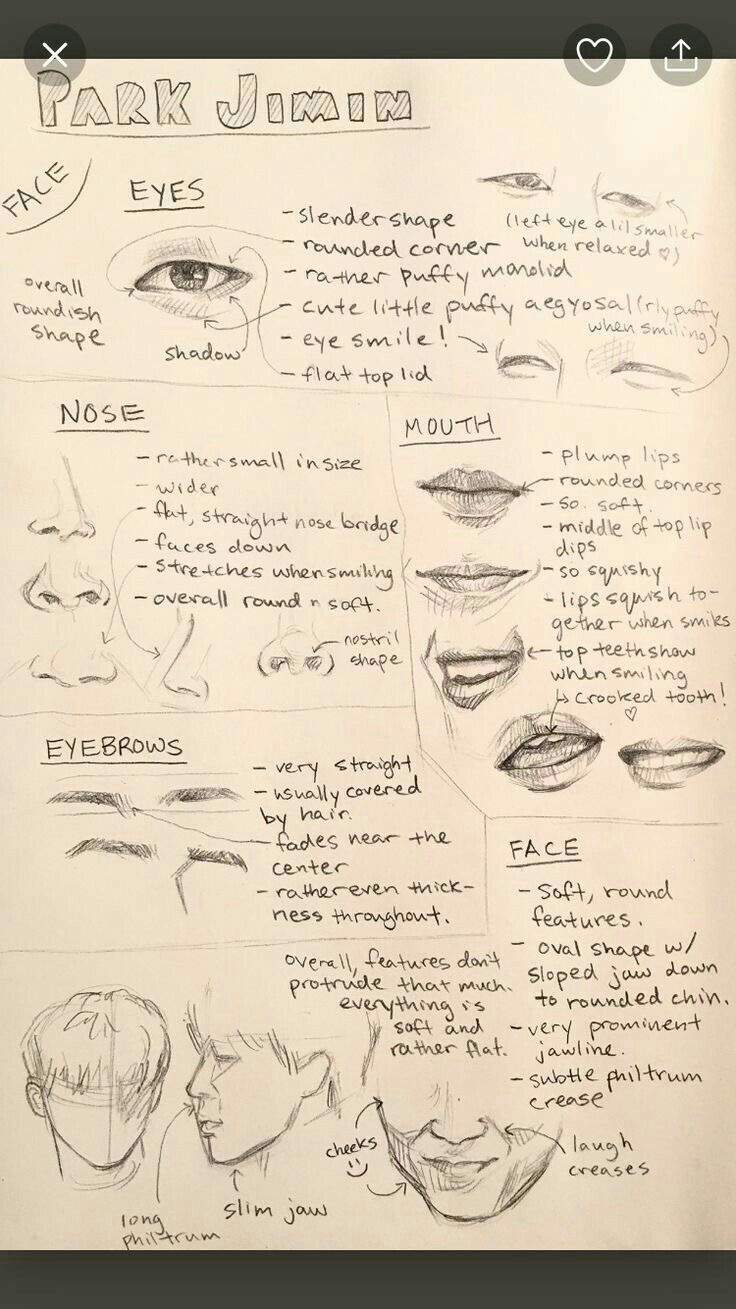 PARK JIMIN
FACE
EYES
- slender shape
- rounded corner
- rather puffy monolid
- cute little puffy aegyosal (rly puffy
when smiling)
- eye smile!
- flat top lid
(left eye a lil smaller
when relaxed ♡)
overall
roundish
shape
shadow
NOSE
- rather small in size
- wider
- flat, straight nose bridge
- faces down
- stretches when smiling
- overall round n soft.
nostril
shape
MOUTH
- plump lips
- rounded corners
- so. soft.
- middle of top lip
dips
- so squishy
- lips squish to-
gether when smiles
- top teeth show
when smiling
↳ crooked tooth!
♡
EYEBROWS
- very straight
- usually covered
by hair.
- fades near the
center
- rather even thick-
ness throughout.
FACE
- soft, round
features.
- oval shape w/
sloped jaw down
to rounded chin.
- very prominent
jawline.
- subtle philtrum
crease
overall, features don't
protrude that much.
everything is
soft and
rather flat.
long
philtrum
slim jaw
cheeks
laugh
creases